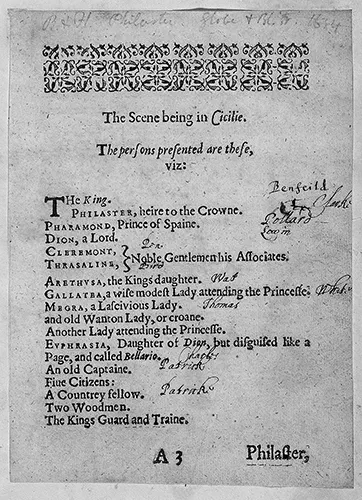 B & F Philaster. Globe & Bl. Fr.
The Scene being in Cicilie.
The persons presented are these,
viz:
Benfeild
THe King.
PHILASTER, heire to the Crowne. Clark
PHARAMOND, Prince of Spaine. Pollard
DION, a Lord. Lowin
CLEREMONT,
THRASALINE, } Noble Gentlemen his Associates.
ARETHVSA, the Kings daughter. Wat
GALLATEA, a wise modest Lady attending the Princesse.
MEGRA, a Lascivious Lady. Thomas
and old Wanton Lady, or croane.
Another Lady attending the Princesse.
EVPHRASIA, Daughter of Dion, but disguised like a
Page, and called Bellario. Charles
An old Captaine. Patrick
Fiue Citizens:
A Countrey fellow. Patrick
Two Woodmen.
The Kings Guard and Traine.
A 3 Philaster,